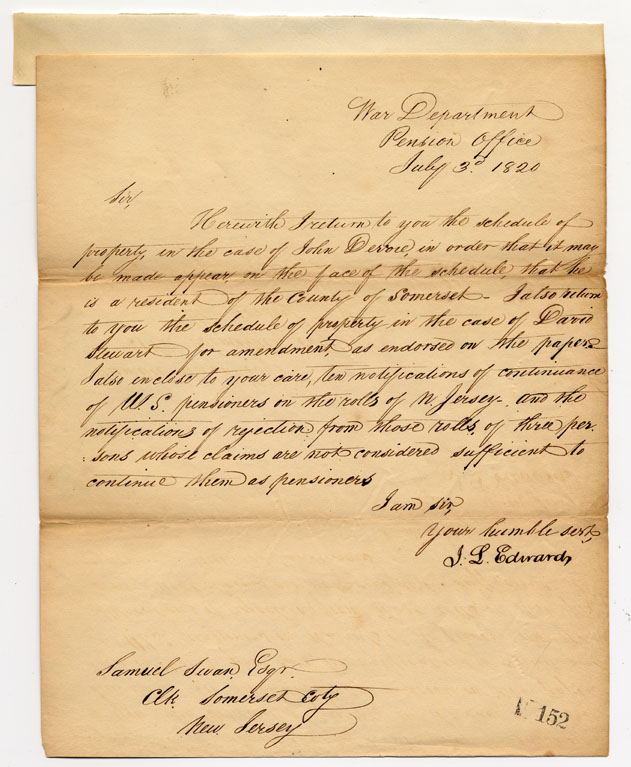 War Department
Pension Office
July 3d 1820
Sir,
Herewith I return to you the schedule of
property, in the case of John Derrie, in order that it may
be made appear, on the face of the schedule, that he
is a resident of the County of Somerset - I also return
to you the schedule of property in the case of David
Stewart for amendment, as endorsed on the papers
I also enclose to your care, ten notifications of continuance
of U.S. pensioners on the rolls of N Jersey - and the
notifications of rejection from those rolls, of three per-
:sons whose claims are not considered sufficient to
continue them as pensioners
I am sir,
your humble servt,
J. L. Edwards
Samuel Swan, Esqr.
Clk. Somerset Coty
New Jersey
152